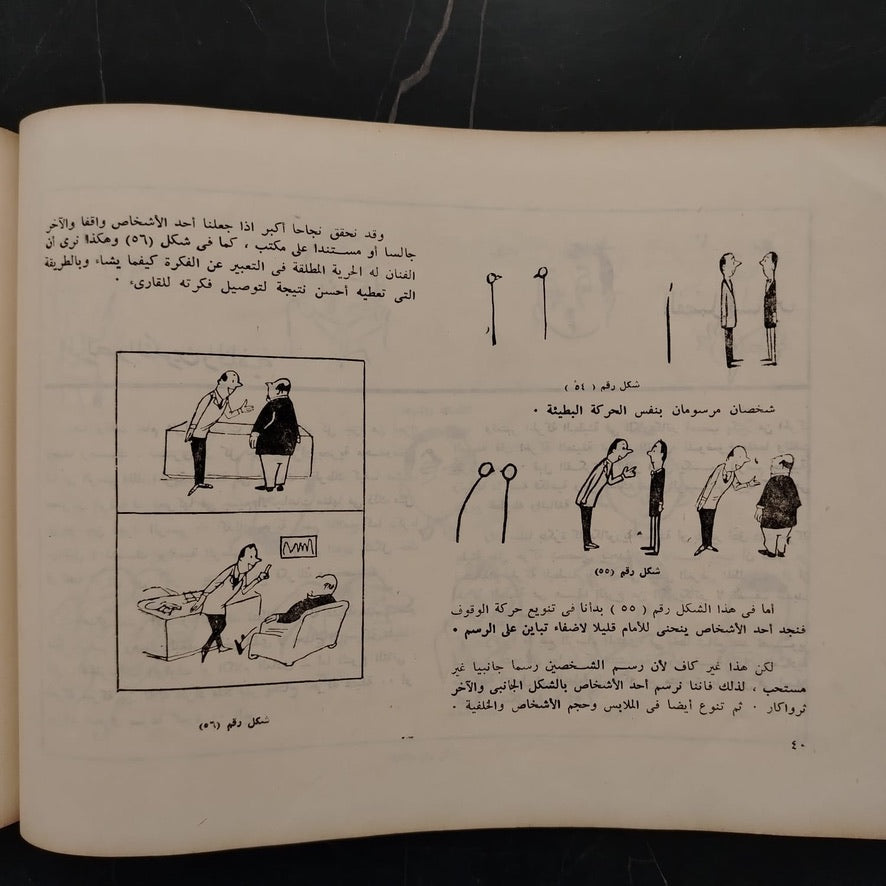 شكل رقم ( ٥٤ )
شخصان مرسومان بنفس الحركة البطيئة ٠
شكل رقم (٥٥)
أما فى هذا الشكل رقم ( ٥٥ ) بدأنا فى تنويع حركة الوقوف
فنجد أحد الأشخاص ينحنى للأمام قليلا لاضفاء تباين على الرسم ٠
لكن هذا غير كاف لأن رسم الشخصين رسما جانبيا غير
مستحب ، لذلك فاننا نرسم أحد الأشخاص بالشكل الجانبى والآخر
ثرواكار ٠ ثم تنوع أيضا فى الملابس وحجم الأشخاص والخلفية ٠
٤٠
وقد نحقق نجاحا أكبر اذا جعلنا أحد الأشخاص واقفا والآخر
جالسا أو مستندا على مكتب ، كما فى شكل (٥٦) وهكذا نرى أن
الفنان له الحرية المطلقة فى التعبير عن الفكرة كيفما يشاء وبالطريقة
التى تعطيه أحسن نتيجة لتوصيل فكرته للقارىء ٠
شكل رقم (٥٦)